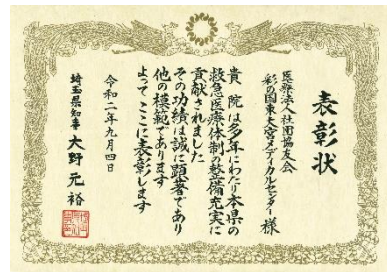 表彰状
医療法人社団協友会
彩の国東大宮メディカルセンター 様
貴 院は多年にわたり本県の
救急医療体制の整備充実に
貢献されました
その功績は誠に顕著であり
他の模範であります
よって ここに表彰します
令和二年九月四日
埼玉県知事 大野 元裕